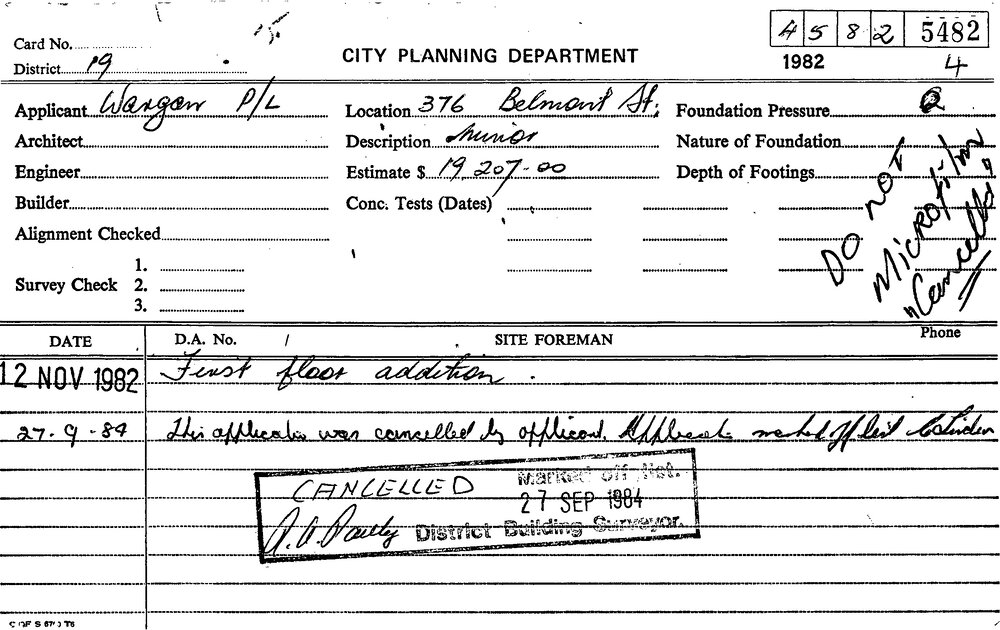 Card No.
4 5 8 2 5482
District 19
CITY PLANNING DEPARTMENT
1982 4
Applicant Wargon P/L
Location 376 Belmont St.
Foundation Pressure
Architect
Description Minor
Nature of Foundation
Engineer
Estimate $ 19,207-00
Depth of Footings
Builder
Conc. Tests (Dates)
Alignment Checked
DO NOT
MICROFILM
"Cancelled"
1.
Survey Check 2.
3.
DATE D.A. No. / SITE FOREMAN Phone
12 NOV 1982 First floor addition.
27-9-84 This application was cancelled by applicant. Application marked off list
CANCELLED Marked off list.
27 SEP 1984
District Building Surveyor.
C OF S